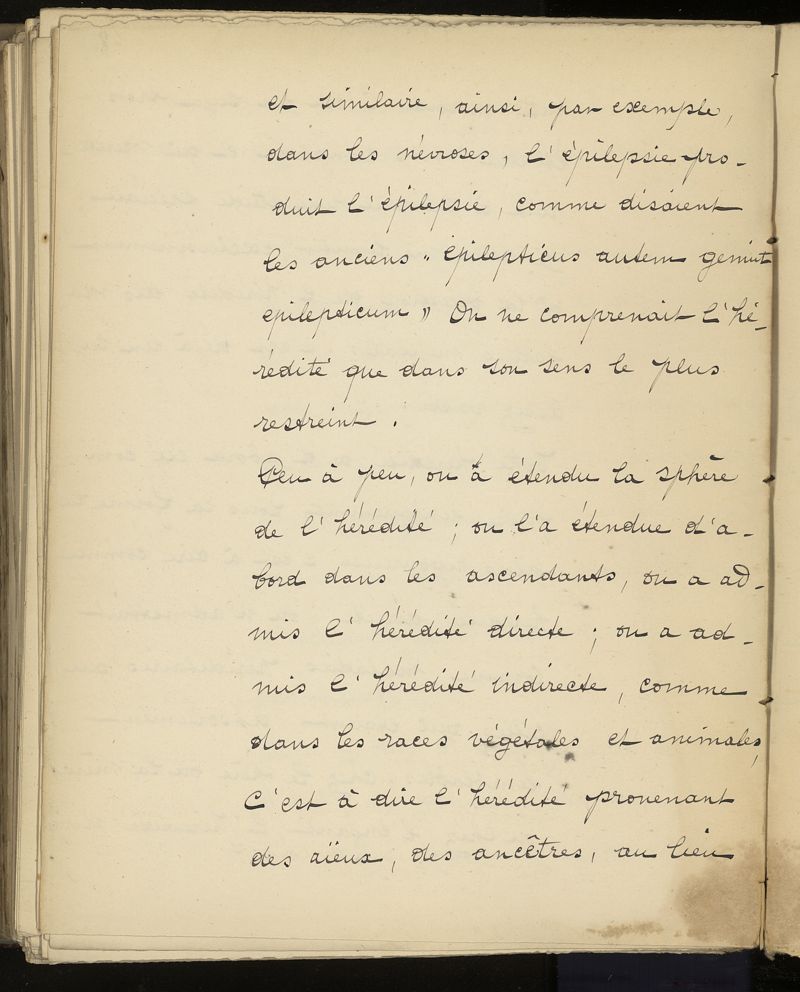 et similaire, ainsi, par exemple,
dans les névroses, l'épilepsie pro-
duit l'épilepsie, comme disaient
les anciens " épilepticus autem geniut
epilepticum " On ne comprenait l'hé-
rédité que dans son sens le plus
restreint.
Peu à peu, on à étendu la sphère
de l'hérédité ; on l'a étendue d'a-
bord dans les ascendants, on a ad-
mis l'hérédité directe ; on a ad-
mis l'hérédité indirecte, comme
dans les races végétales et animales,
C'est à dire l'hérédité provenant
des aïeux, des ancêtres, au lieu